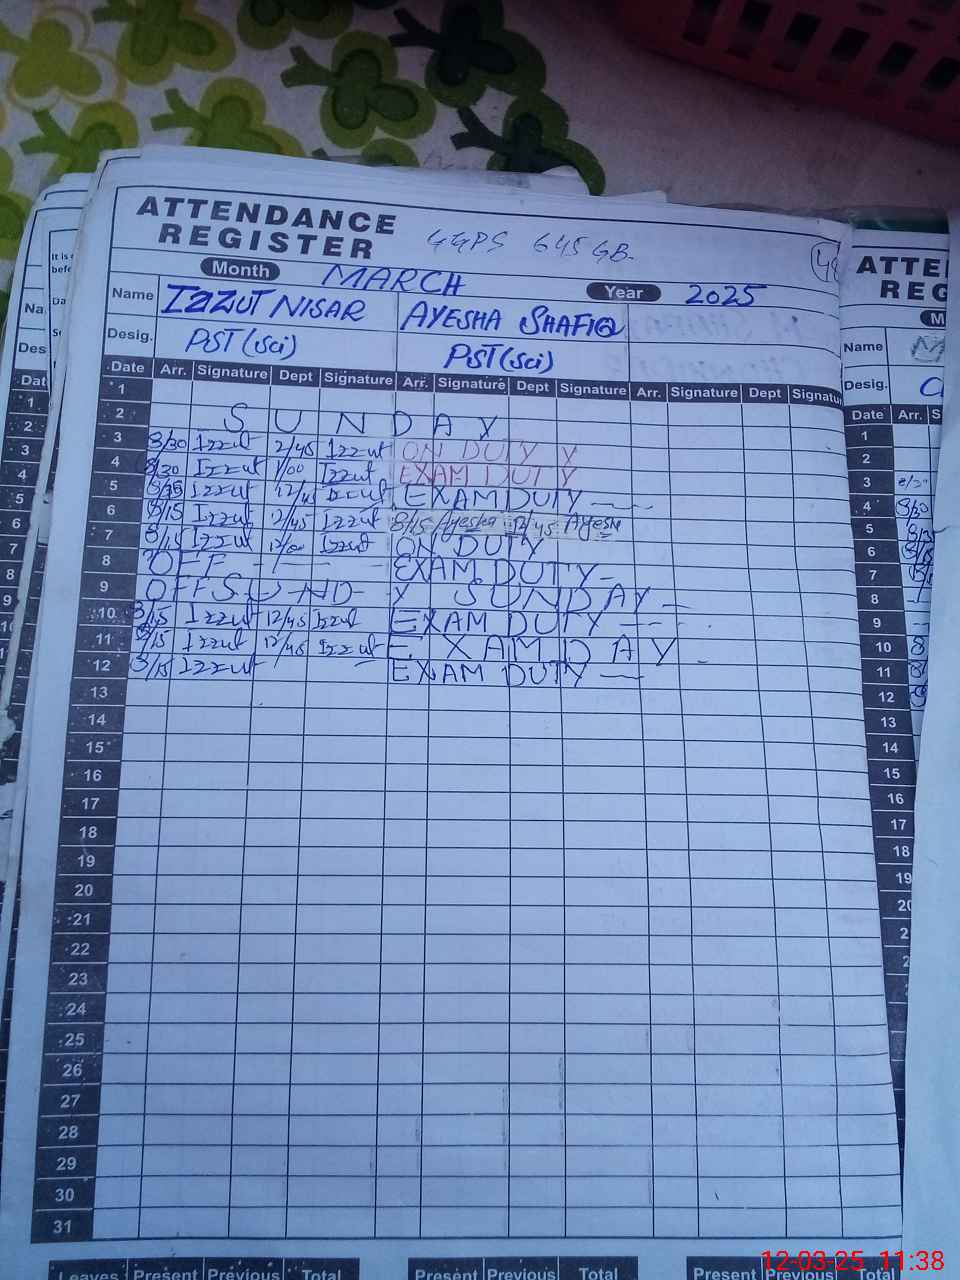 ATTENDANCE
REGISTER
GGPS 645 GB.
Month MARCH Year 2025
Name IZZUT NISAR AYESHA SHAFIQ
Desig. PST (sci) PST (sci)
Date Arr. Signature Dept Signature Arr. Signature Dept Signature Arr. Signature Dept Signature
1
2 S U N D A Y
3 8/30 Izzut 2/45 Izzut ON DUTY
4 8/30 Izzut 1/00 Izzut EXAM DUTY
5 Izzut 12/45 Izzut EXAM DUTY
6 8/15 Izzut 12/45 Izzut 8/15 Ayesha 12/45 Ayesha
7 8/15 Izzut 12/00 Izzut ON DUTY
8 OFF EXAM DUTY
9 OFF SUNDAY SUNDAY
10 8/15 Izzut 12/45 Izzut EXAM DUTY
11 8/15 Izzut 12/45 Izzut EXAM DAY
12 8/15 Izzut EXAM DUTY
13
14
15
16
17
18
19
20
21
22
23
24
25
26
27
28
29
30
31
Leaves Present Previous Total Present Previous Total Present Previous Total
It is
ATTE
REG
M
Name
Desig.
Date Arr. S
1
2
3
4 8/30
5
6
7
8
9
10 8
11
12
13
14
15
16
17
18
19
12-03-25 11:38